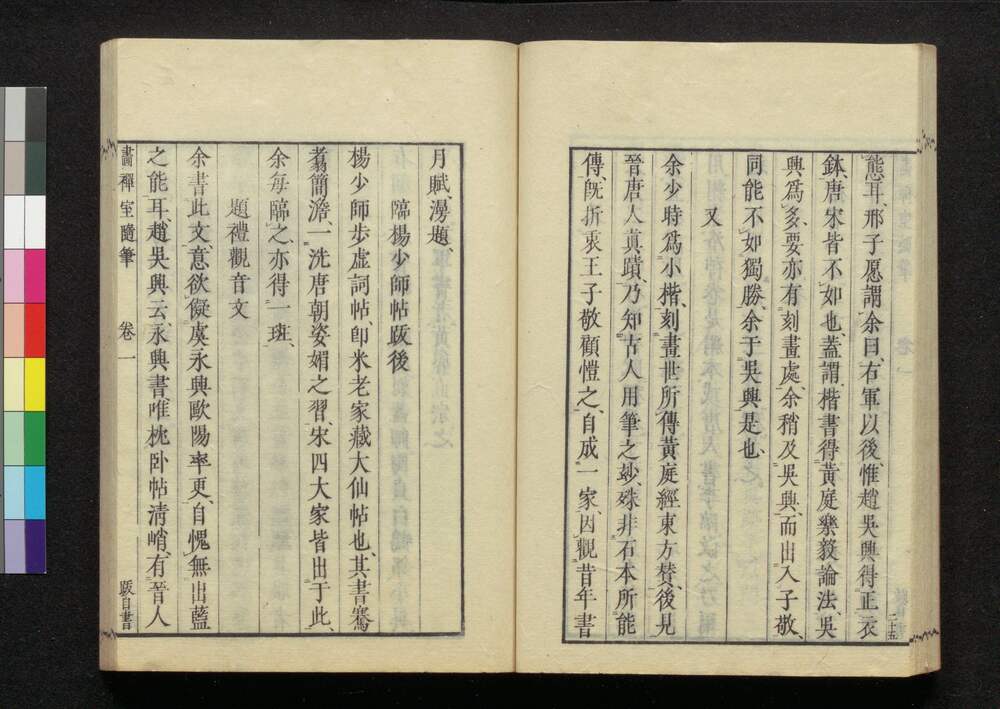 態耳、邢子愿謂余曰、右軍以後、惟趙吳興得正衣
鉢、唐宋皆不如也、蓋謂楷書得黃庭樂毅論法、吳
興爲多、要亦有刻畫處、余稍及吳興、而出入子敬、
同能不如獨勝、余于吳興是也、
又
余少時爲小楷、刻畫世所傳黃庭經東方贊、後見
晉唐人眞蹟、乃知古人用筆之妙、殊非石本所能
傳、旣折衷王子敬顧愷之、自成一家、因觀昔年書
二十五
月賦、漫題、
臨楊少師帖跋後
楊少師步虛詞帖、卽米老家藏大仙帖也、其書騫
翥簡澹、一洗唐朝姿媚之習、宋四大家皆出于此、
余每臨之、亦得一班、
題禮觀音文
余書此文、意欲儗虞永興歐陽率更、自愧無出藍
之能耳、趙吳興云、永興書、唯枕卧帖清峭、有晉人
畵禪室隨筆 卷一 跋自書